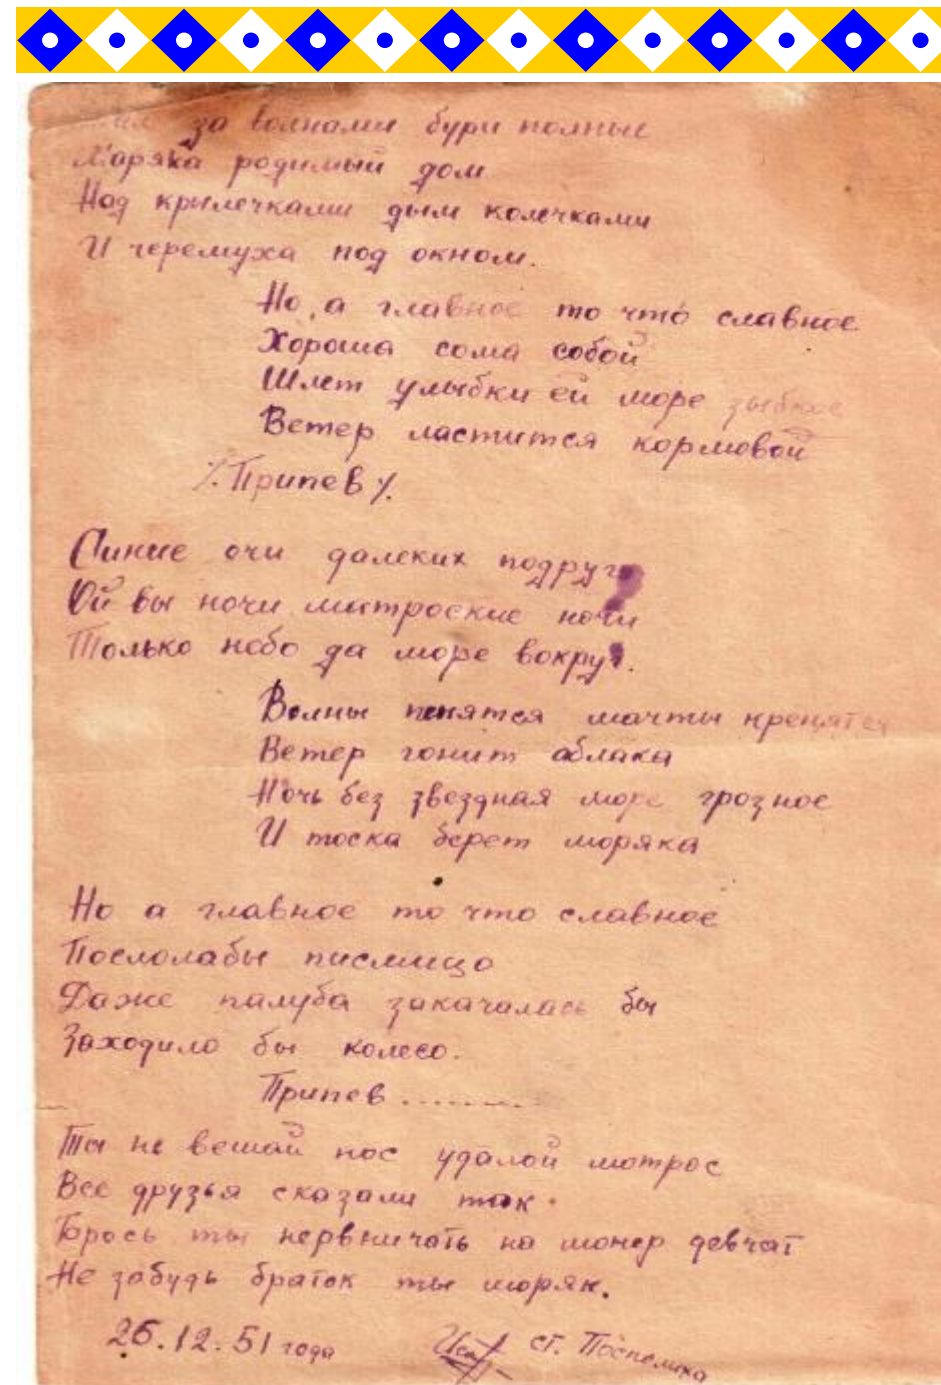 за волнами бури полные
Моряка родимый дом
Над крылечками дым колечками
И черемуха под окном.
Но, а главное то что славное
Хороша сома собой
Шлет улыбки ей море зыбкое
Ветер ластится кормовой
∕. Припев ∕.
Синие очи далеких подруг
Ой вы ночи матроские ночи
Только небо да море вокруг.
Волны пенятся мачты кренятся
Ветер гонит аблака
Ночь без звездная море грозное
И тоска берет моряка
Но а главное то что славное
Послолабы писмицо
Даже палуба закачалась бы
Заходило бы колесо.
Припев ........
Ты не вешай нос удалой мотрос
Все друзья сказали так.
Брось ты нервничать на манер девчат
Не забудь браток ты моряк.
26.12.51 года ст. Поспелиха